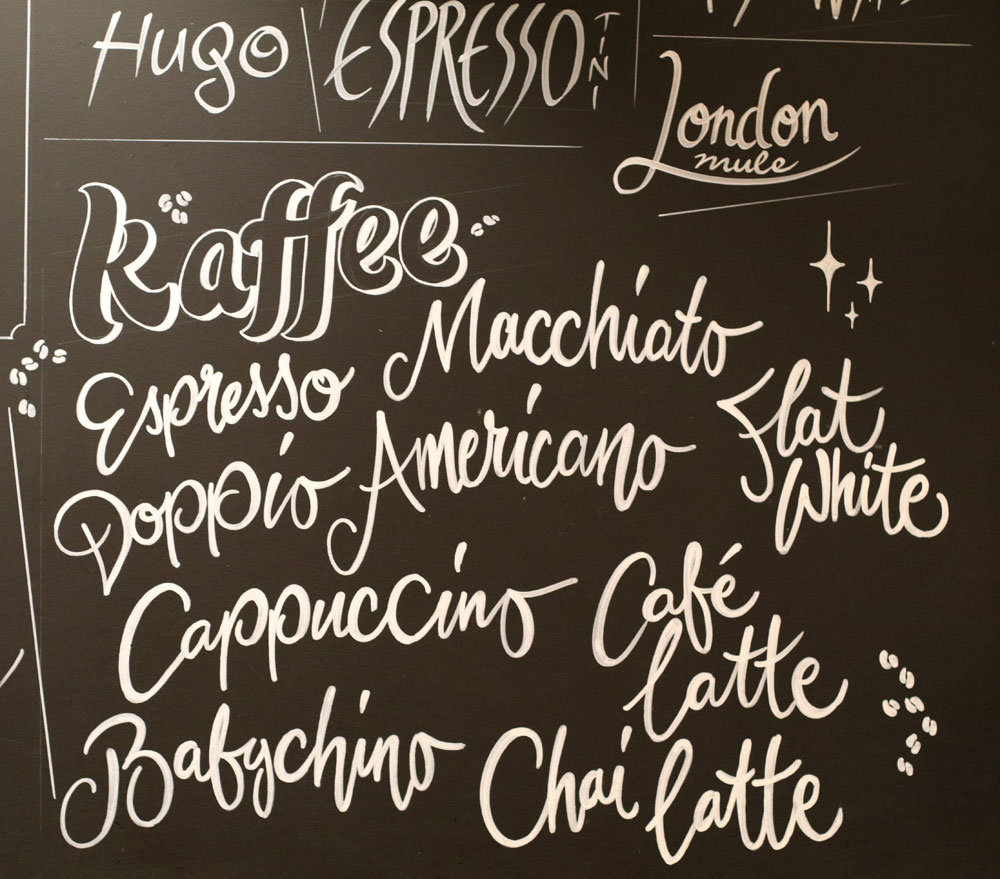 Hugo
ESPRESSO
TINI
London
mule
Kaffee
Macchiato
Espresso
Flat
White
Americano
Doppio
Cappuccino
Café
latte
Babychino
Chai latte